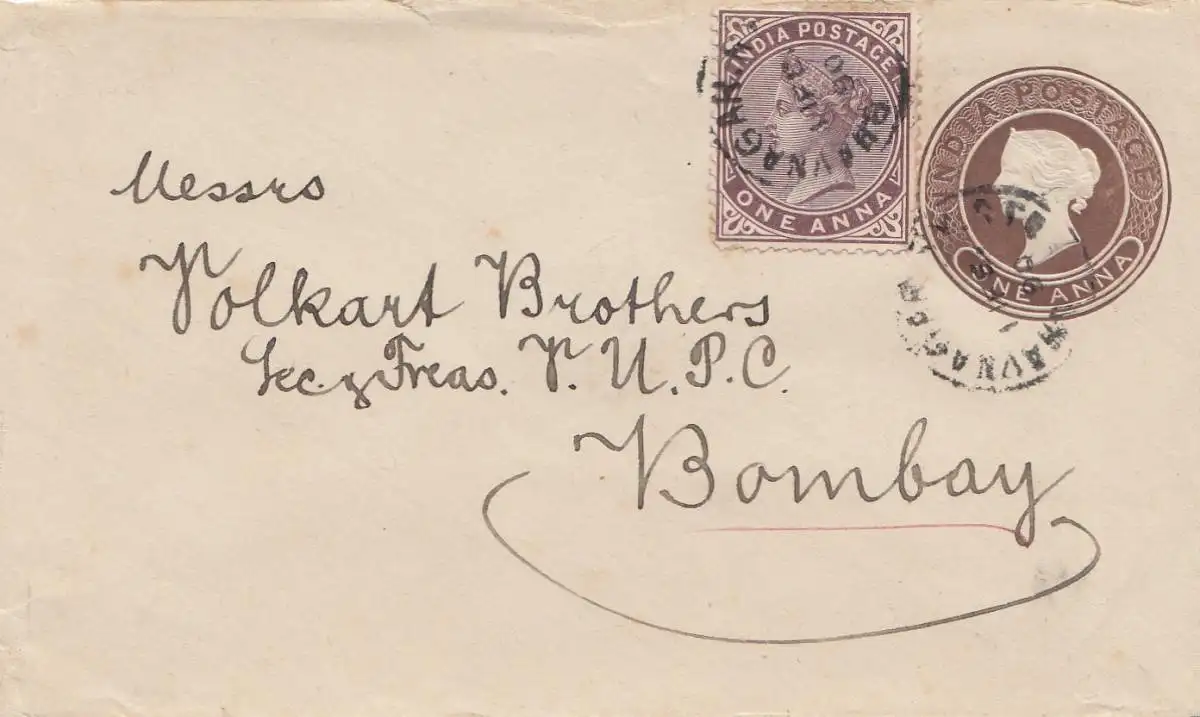 INDIA POSTAGE
ONE ANNA
INDIA POSTAGE
ONE ANNA
Messrs
Volkart Brothers
Sec. & Treas. V. U. P. C.
Bombay